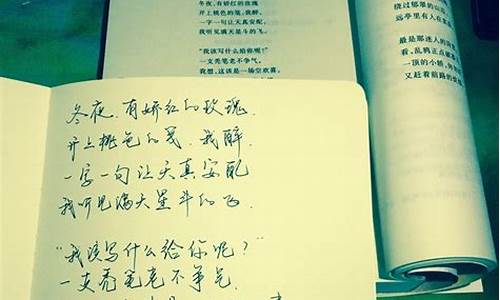 冬夜,有娇红的玫瑰
开上桃色的笺,我醉,
一字一句让天真安配,
我听见满天星斗的飞。
"我该写什么给你呢?"
一支秃笔老不争气,
我想,这该是一场空欢喜,
绕过郁翠的山
远亭里有人在
最是那迷人的
看,乱鸦正点破
一顶的小轿,
又赶着前路的
冬夜,有娇红的玫瑰,
开上桃色的笺,我醉,
一字一句让天真安配
我听见满天星斗的飞.
"我该写什么给你呢?"
一支秃笔老不争气,